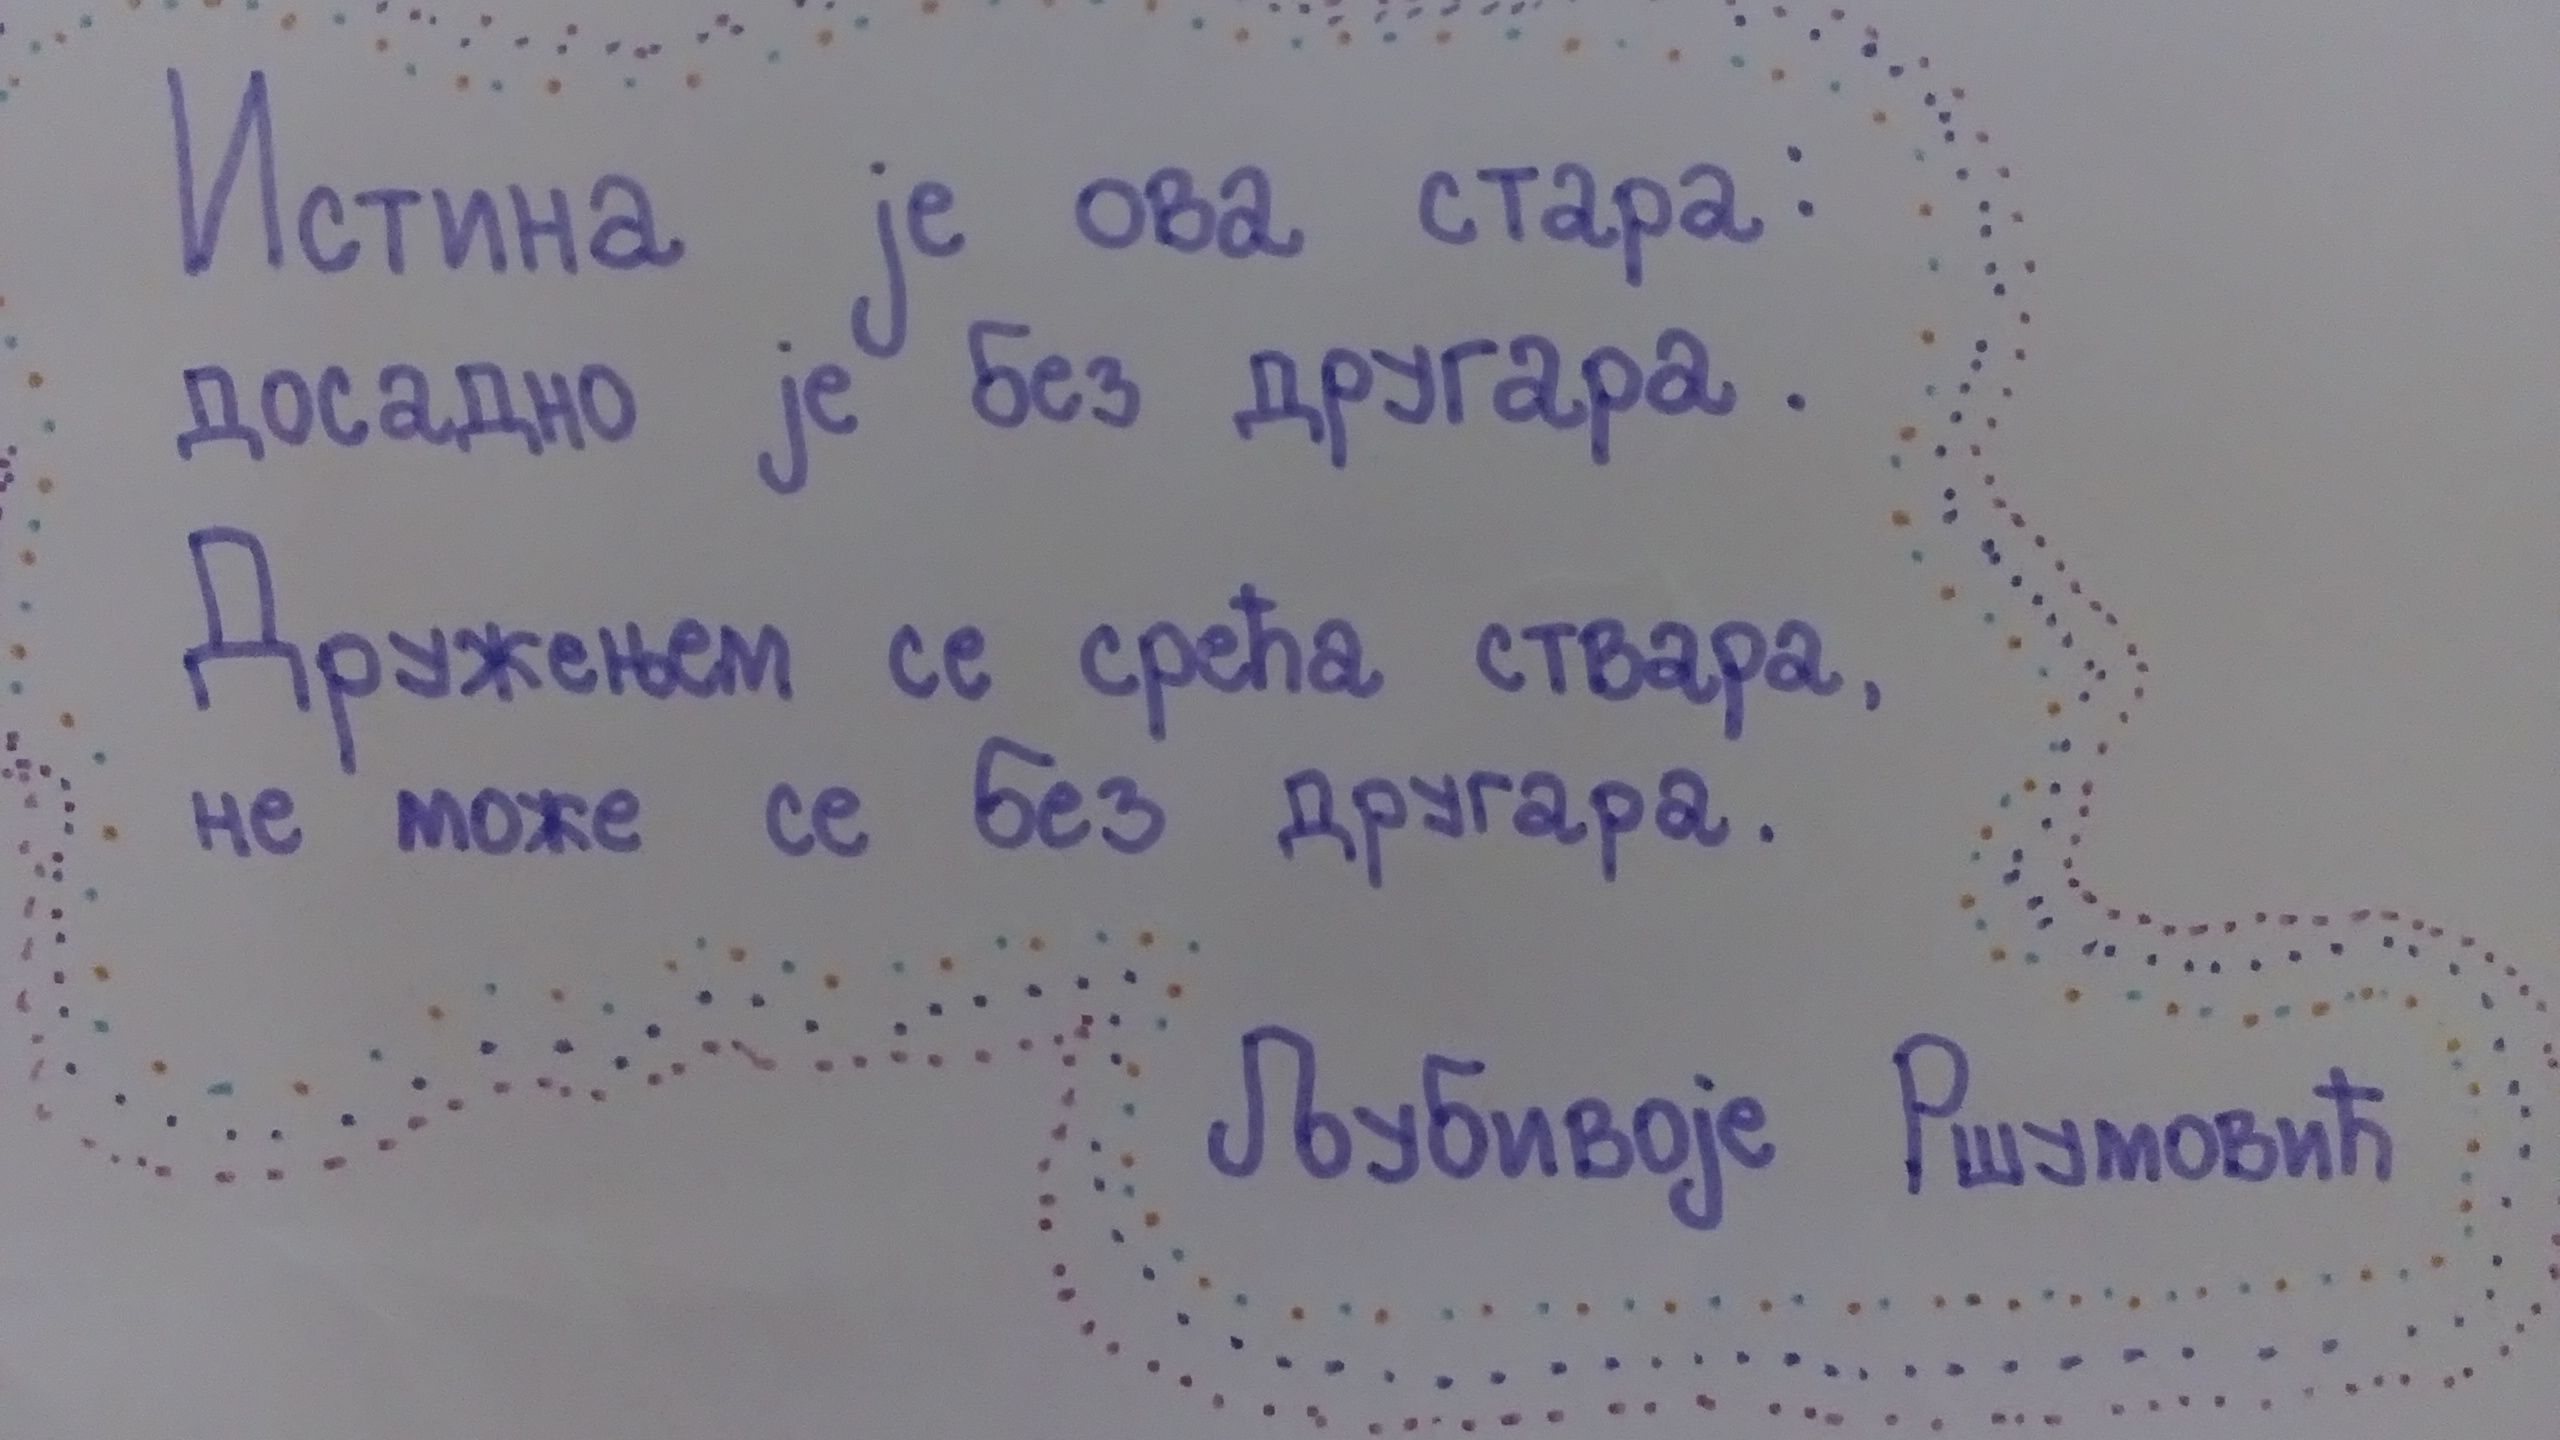 Истина је ова стара:
досадно је без другара.
Дружењем се срећа ствара,
не може се без другара.
Љубивоје Ршумовић